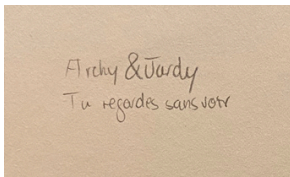 Archy & Jardy
Tu regardes sans voir